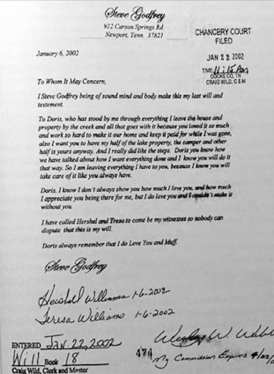 Steve Godfrey
912 Carson Springs Rd.
Newport, Tenn. 37821
CHANCERY COURT
FILED
January 6, 2002
JAN 22 2002
TIME
COCKE CO., TN
CRAIG WILD, C & M
To Whom It May Concern,
I Steve Godfrey being of sound mind and body make this my last will and
testement.
To Doris, who has stood by me through everything I leave the house and
property by the creek and all that goes with it because you loved it so much
and work so hard to make it our home and keep it paid for while I was gone,
also I want you to have my half of the lake property, the camper and other
half is yours anyway. And I really did like the steps. Doris you know how
we have talked about how I want everything done and I know you will do it
that way. So I am leaving everything I have to you, because I know you will
take care of it like you always have.
Doris, I know I don't always show you how much I love you, and how much
I appreciate you being there for me, but I do love you and I couldn't make it
without you.
I have called Hershel and Tresa to come be my witnesses so nobody can
dispute that this is my will.
Doris always remember that I do Love You and Muff.
Steve Godfrey
Hershel Williams 1-6-2002
Teresa Williams 1-6-2002
ENTERED JAN. 22, 2002
Will Book 18
Craig Wild, Clerk and Master
My Commission Expires